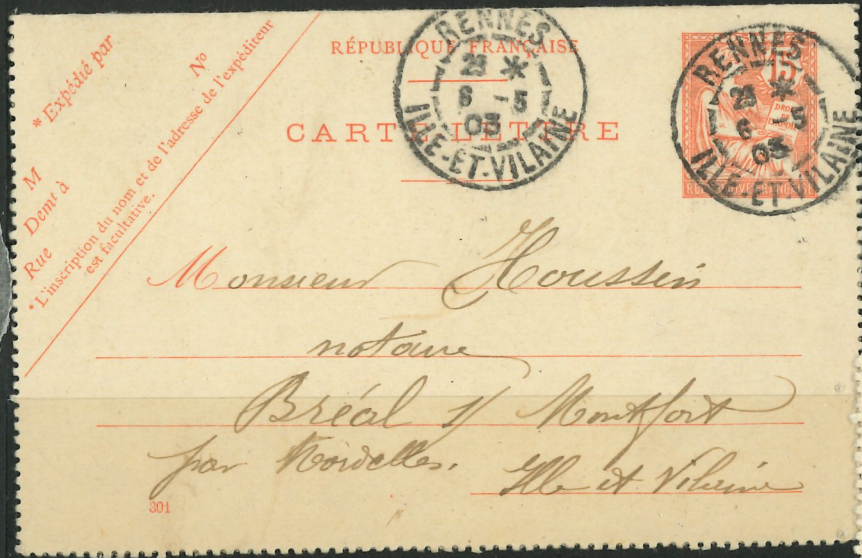 * Expédié par
Nº
M
Demt à
Rue
* L'inscription du nom et de l'adresse de l'expéditeur
est facultative.
RÉPUBLIQUE FRANÇAISE
CARTE-LETTRE
RENNES
6 -5
03
ILLE-ET-VILAINE
15
RENNES
6 -5
03
ILLE-ET-VILAINE
Monsieur Houssin
notaire
Bréal s/ Montfort
par Mordelles.
Ille et Vilaine
301